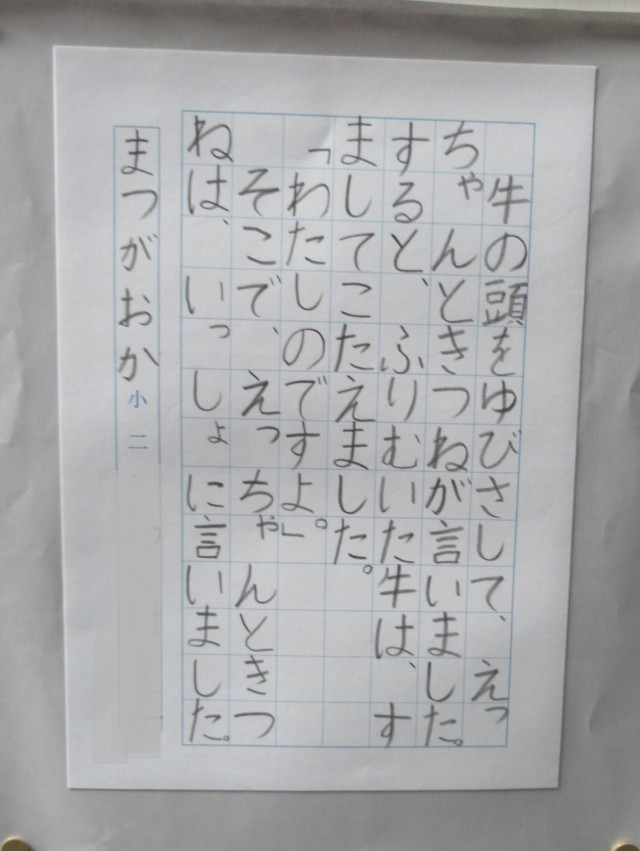 牛の頭をゆびさして、えっ
ちゃんときつねが言いました。
すると、ふりむいた牛は、す
ましてこたえました。
「わたしのですよ。」
そこで、えっちゃんときつ
ねは、いっしょに言いました。
まつがおか小二